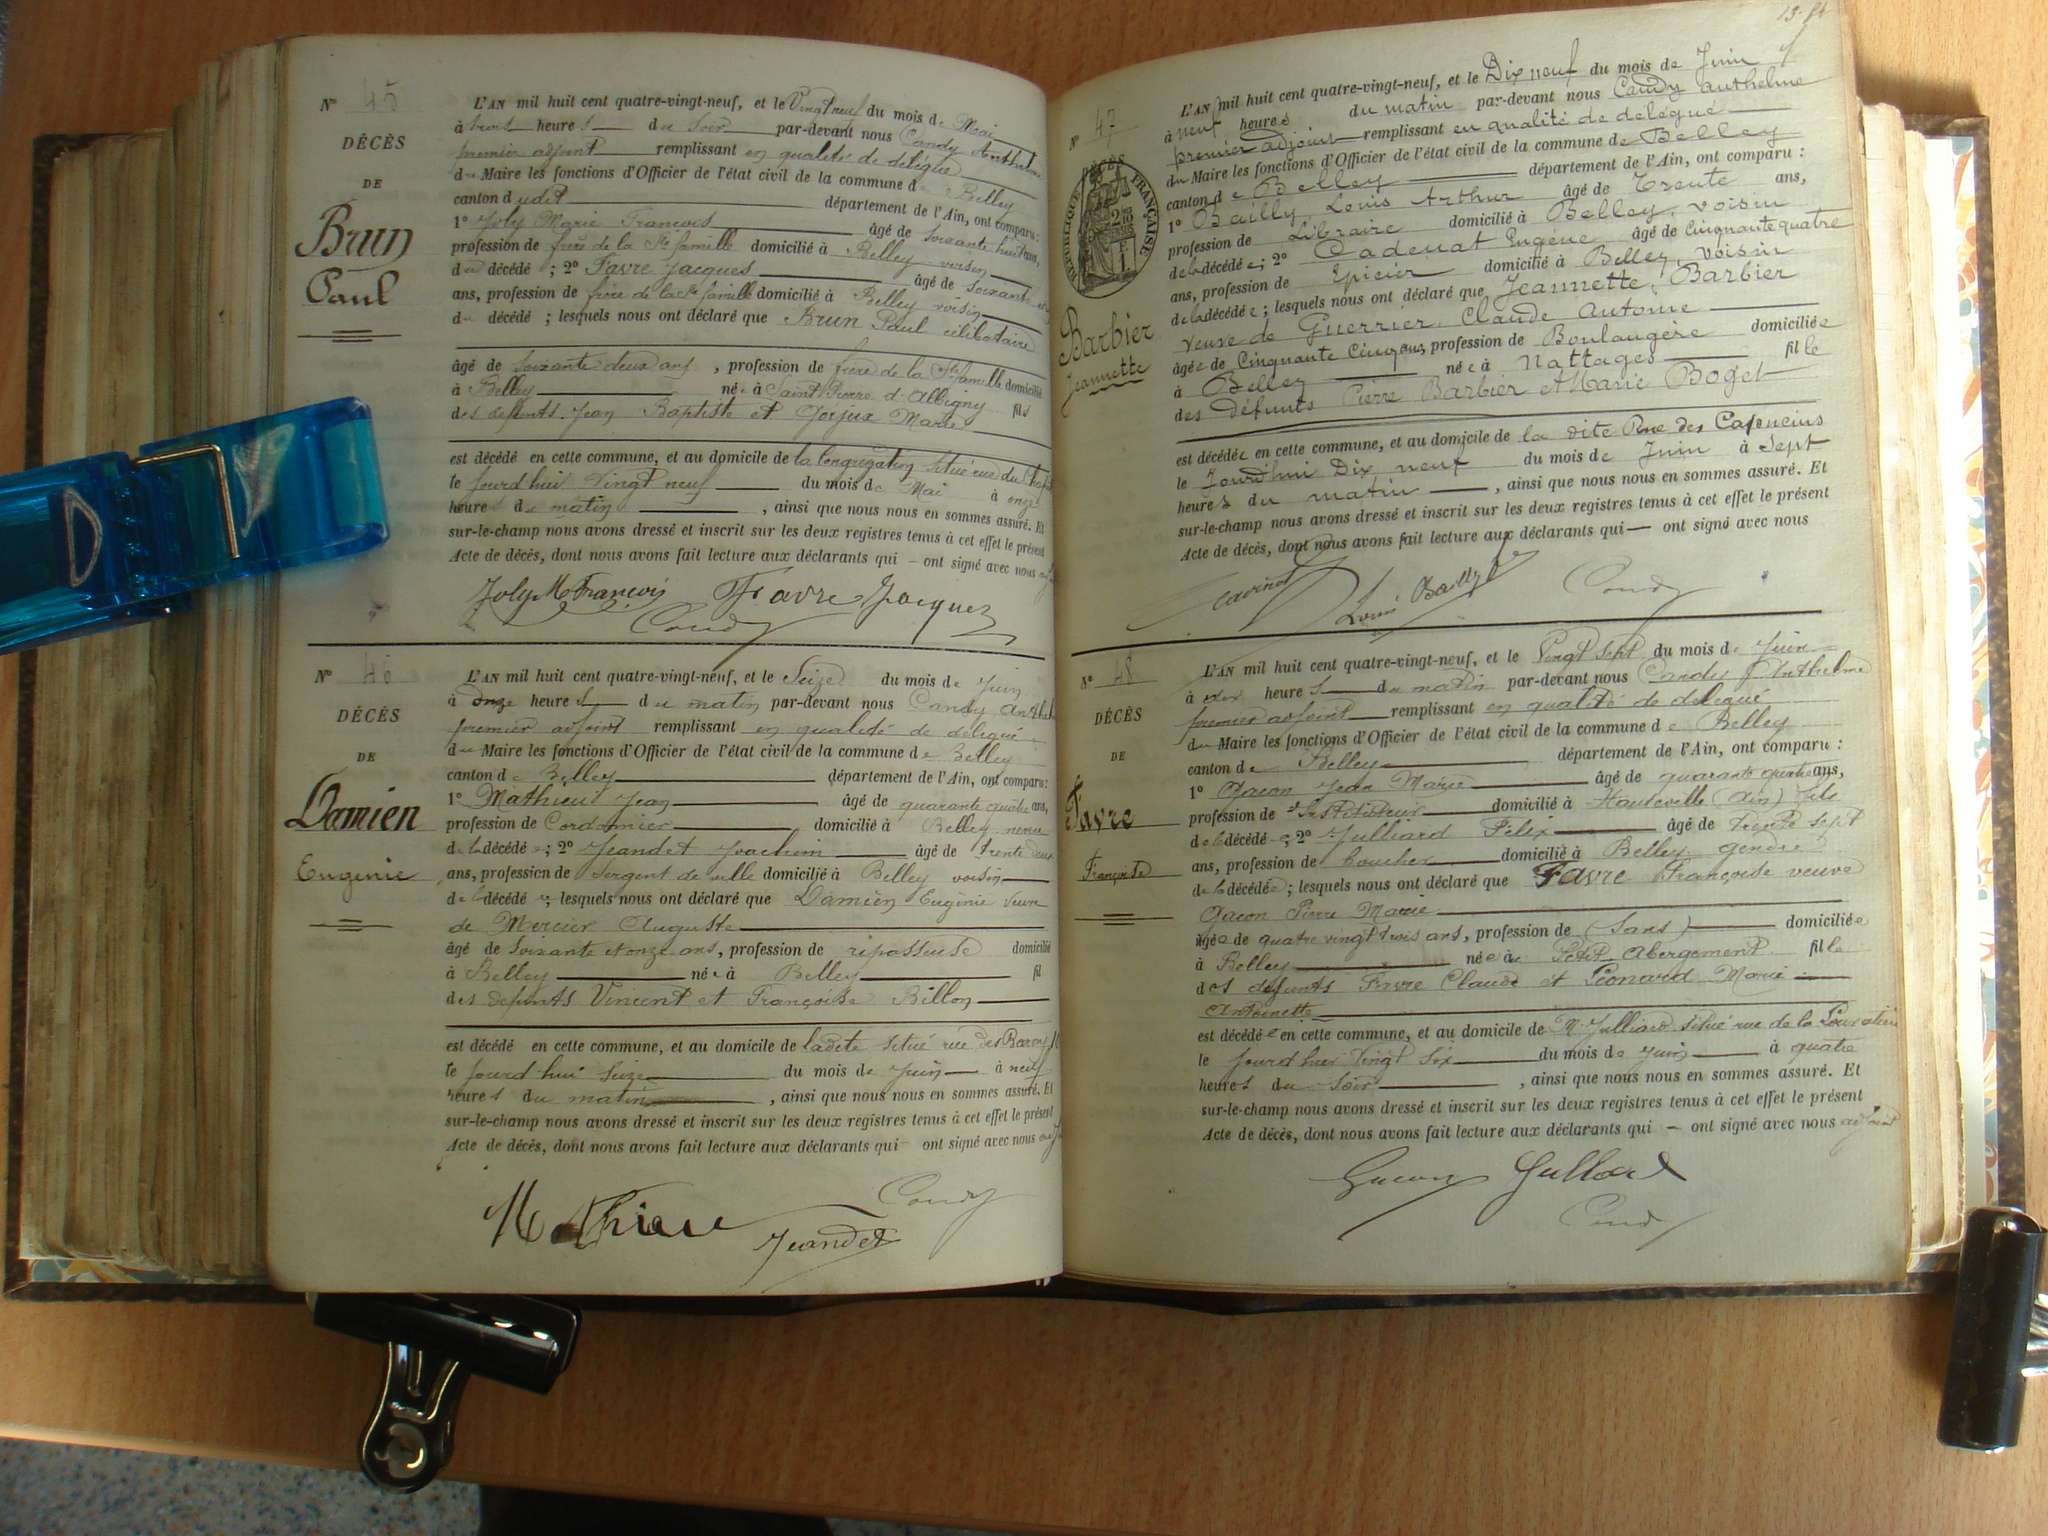 N° 45
DÉCÈS
DE
Brun
Paul
L'AN mil huit cent quatre-vingt-neuf, et le Vingt neuf du mois de Mai
à trois heures du Soir par-devant nous Candy Anthelme
premier adjoint remplissant en qualité de délégué
du Maire les fonctions d'Officier de l'état civil de la commune de Belley
canton dudit département de l'Ain, ont comparu :
1° Joly Marie François âgé de Soixante huit ans,
profession de frère de la Ste famille domicilié à Belley voisin
du décédé ; 2° Favre Jacques âgé de Soixante
ans, profession de frère de la Ste famille domicilié à Belley voisin
du décédé ; lesquels nous ont déclaré que Brun Paul célibataire
âgé de Soixante deux ans , profession de frère de la Ste famille domicilié
à Belley né à Saint Pierre d'Albigny fils
des défunts Jean Baptiste et Marie
est décédé en cette commune, et au domicile de la Congrégation situé rue du
le jourd'hui Vingt neuf du mois de Mai à onze
heures du matin , ainsi que nous nous en sommes assuré. Et
sur-le-champ nous avons dressé et inscrit sur les deux registres tenus à cet effet le présent
Acte de décès, dont nous avons fait lecture aux déclarants qui — ont signé avec nous
Joly M François Favre Jacques
Candy
N° 46
DÉCÈS
DE
Damien
Eugénie
L'AN mil huit cent quatre-vingt-neuf, et le Seize du mois de Juin
à onze heures du matin par-devant nous Candy Anthel
premier adjoint remplissant en qualité de délégué
du Maire les fonctions d'Officier de l'état civil de la commune de Belley
canton de Belley département de l'Ain, ont comparu :
1° Mathieu Jean âgé de quarante quatre ans,
profession de Cordonnier domicilié à Belley neveu
de la décédée ; 2° Jeandet Joachim âgé de trente deux
ans, profession de Sergent de ville domicilié à Belley voisin
de la décédée ; lesquels nous ont déclaré que Damien Eugénie Veuve
de Mercier Auguste
âgé de Soixante et onze ans, profession de repasseuse domicilié
à Belley née à Belley fil
des défunts Vincent et Françoise Billon
est décédé en cette commune, et au domicile de ladite situé rue des Barons
le jourd'hui Seize du mois de Juin à neuf
heures du matin , ainsi que nous nous en sommes assuré. Et
sur-le-champ nous avons dressé et inscrit sur les deux registres tenus à cet effet le présent
Acte de décès, dont nous avons fait lecture aux déclarants qui — ont signé avec nous
Mathieu Candy
Jeandet
N° 47
DÉCÈS
RÉPUBLIQUE FRANÇAISE
Barbier
Jeannette
L'AN mil huit cent quatre-vingt-neuf, et le Dix neuf du mois de Juin
à neuf heures du matin par-devant nous Candy Anthelme
premier adjoint remplissant en qualité de délégué
du Maire les fonctions d'Officier de l'état civil de la commune de Belley
canton de Belley département de l'Ain, ont comparu :
1° Bailly Louis Arthur âgé de Trente ans,
profession de Libraire domicilié à Belley, voisin
de la décédée ; 2° Cadenat Eugène âgé de Cinquante quatre
ans, profession de Epicier domicilié à Belley, voisin
de la décédée ; lesquels nous ont déclaré que Jeannette, Barbier
veuve de Guerrier, Claude Antoine
âgée de Cinquante Cinq ans, profession de Boulangère domiciliée
à Belley née à Nattages fille
des Défunts Pierre Barbier et Marie Boget
est décédée en cette commune, et au domicile de la dite Rue des Capucins
le Jourd'hui Dix neuf du mois de Juin à Sept
heures du matin , ainsi que nous nous en sommes assuré. Et
sur-le-champ nous avons dressé et inscrit sur les deux registres tenus à cet effet le présent
Acte de décès, dont nous avons fait lecture aux déclarants qui — ont signé avec nous
Louis Bailly Candy
N° 48
DÉCÈS
DE
Favre
Françoise
L'AN mil huit cent quatre-vingt-neuf, et le Vingt Sept du mois de Juin
à dix heures du matin par-devant nous Candy Anthelme
premier adjoint remplissant en qualité de délégué
du Maire les fonctions d'Officier de l'état civil de la commune de Belley
canton de Belley département de l'Ain, ont comparu :
1° Gacon Jean Marie âgé de quarante quatre ans,
profession de Instituteur domicilié à Hauteville (Ain) fils
de la décédée ; 2° Julliard Félix âgé de Trente Sept
ans, profession de boucher domicilié à Belley gendre
de la décédée ; lesquels nous ont déclaré que Favre Françoise veuve
Gacon Pierre Marie
âgée de quatre vingt trois ans, profession de (Sans) domiciliée
à Belley née au Petit Abergement fille
des défunts Favre Claude et Marie
Antoinette
est décédée en cette commune, et au domicile de Mr Julliard situé rue de la
le jourd'hier Vingt Six du mois de Juin à quatre
heures du Soir , ainsi que nous nous en sommes assuré. Et
sur-le-champ nous avons dressé et inscrit sur les deux registres tenus à cet effet le présent
Acte de décès, dont nous avons fait lecture aux déclarants qui — ont signé avec nous adjoint
Gacon Julliard
Candy